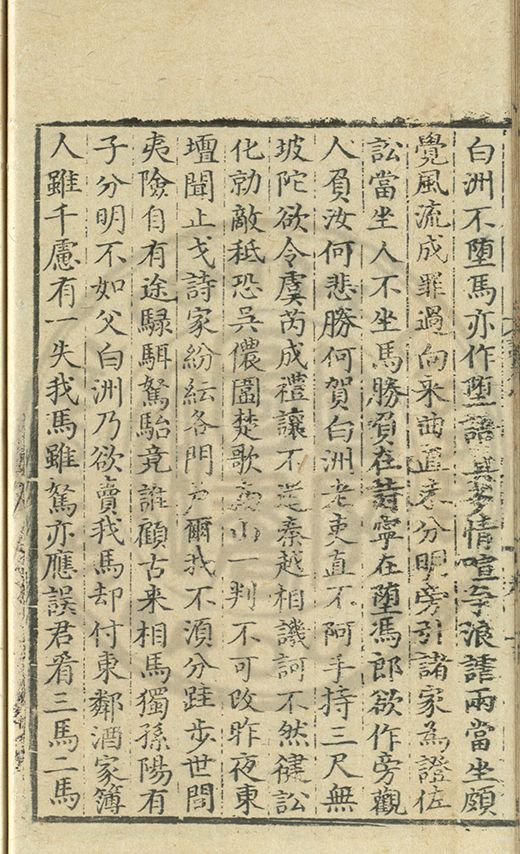 白洲不墮馬亦作墮語其多情喧爭浪謔兩當坐頗
覺風流成罪過向来曲直未分明旁引諸家為證佐
訟當坐人不坐馬勝負在詩寧在墮馮郎欲作旁觀
人負汝何悲勝何賀白洲老吏直不阿手持三尺無
坡陀欲令虞芮成禮讓不逆秦越相譏訶不然健訟
化勍敵秪恐吳儂圍楚歌山一判不可改昨夜東
壇聞止戈詩家紛紜各門户爾我不須分跬步世間
夷險自有途騄駬駑駘竟誰顧古来相馬獨孫陽有
子分明不如父白洲乃欲賣我馬却付東鄰酒家簿
人雖千慮有一失我馬雖駑亦應誤君看三馬二馬